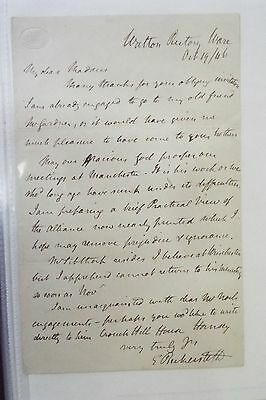 Watton Rectory, Ware
Oct 19/46
My dear Madam
Many thanks for your obliging invitation
I am already engaged to go to my old friend
Mr Gardner, or it would have given me
much pleasure to have come to your
May our gracious God prosper our
meetings at Manchester. It is his work or we
shd long ago have sunk under its difficulties
I am preparing a brief Practical View of
the Alliance now nearly printed which I
hope may remove prejudice & ignorance.
I believe at
but I apprehend cannot return to his
so soon as Novr
I am unacquainted with dear Mr Noel's
engagements - perhaps you wd like to write
directly to him Crouch Hill House Hornsey
very truly yrs
E Bickersteth